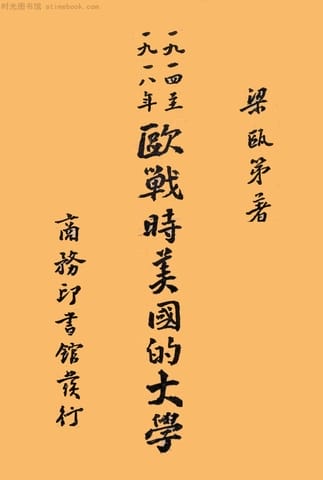 时光图书馆 - atimebook.com
梁甌第著
一九一四至
一九一八年
歐戰時美國的大學
商務印書館發行